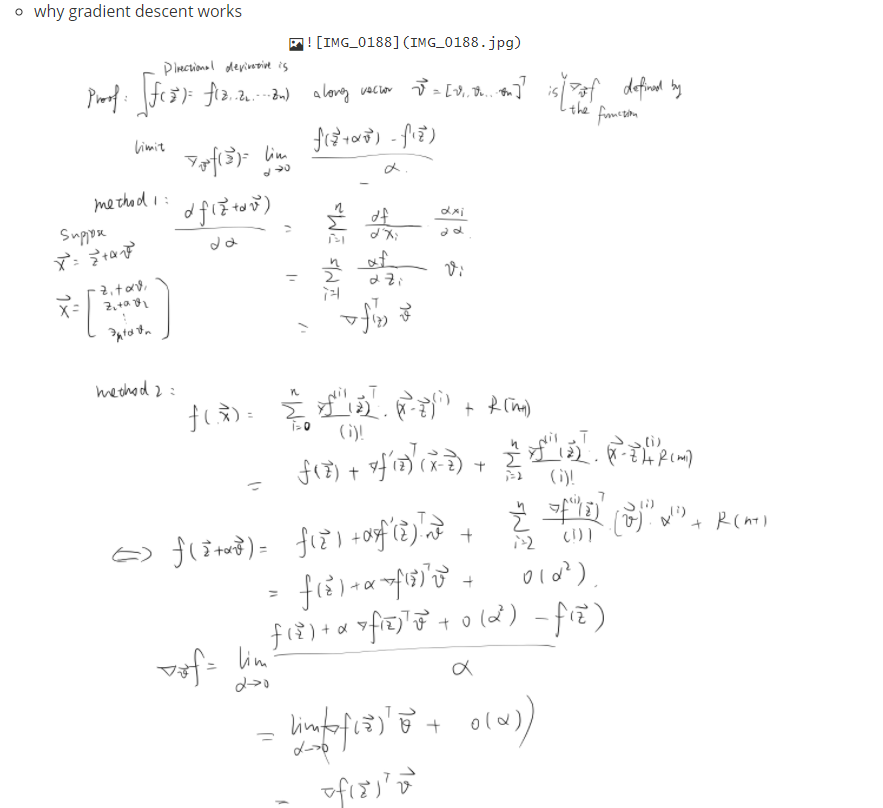 why gradient descent works
![IMG_0188](IMG_0188.jpg)
Directional derivative is
Proof: f(z⃗)= f(z₁,z₂,...zₙ) along vector v⃗ = [v₁,v₂...vₙ]ᵀ is ∇v⃗f defined by
the function
limit ∇v⃗f(z⃗)= lim α→0 (f(z⃗+αv⃗) - f(z⃗)) / α.
method 1: df(z⃗+αv⃗)/dα = Σ i=1 n df/dxᵢ dxᵢ/dα
Suppose
x⃗= z⃗+αv⃗
= Σ i=1 n df/dzᵢ vᵢ
x⃗= [z₁+αv₁
z₂+αv₂
⋮
zₙ+αvₙ]
= ∇fᵀ(z) v⃗
method 2:
f(x⃗) = Σ i=0 n ∇f⁽ⁱ⁾(z⃗)ᵀ/(i)! · (x⃗-z⃗)⁽ⁱ⁾ + R(n+1)
= f(z⃗) + ∇f'(z⃗)ᵀ(x⃗-z⃗) + Σ i=2 n ∇f⁽ⁱ⁾(z⃗)ᵀ/(i)! · (x⃗-z⃗)⁽ⁱ⁾ + R(n+1)
⟺ f(z⃗+αv⃗)= f(z⃗) + α∇f'(z⃗)ᵀ·v⃗ + Σ i=2 n ∇f⁽ⁱ⁾(z⃗)ᵀ/(i)! (v⃗)⁽ⁱ⁾·α⁽ⁱ⁾ + R(n+1)
= f(z⃗) + α∇f(z⃗)ᵀv⃗ + o(α²).
∇v⃗f = lim α→0 (f(z⃗) + α∇f(z⃗)ᵀv⃗ + o(α²) - f(z⃗)) / α
= lim α→0 (∇f(z⃗)ᵀv⃗ + o(α))
= ∇f(z⃗)ᵀv⃗